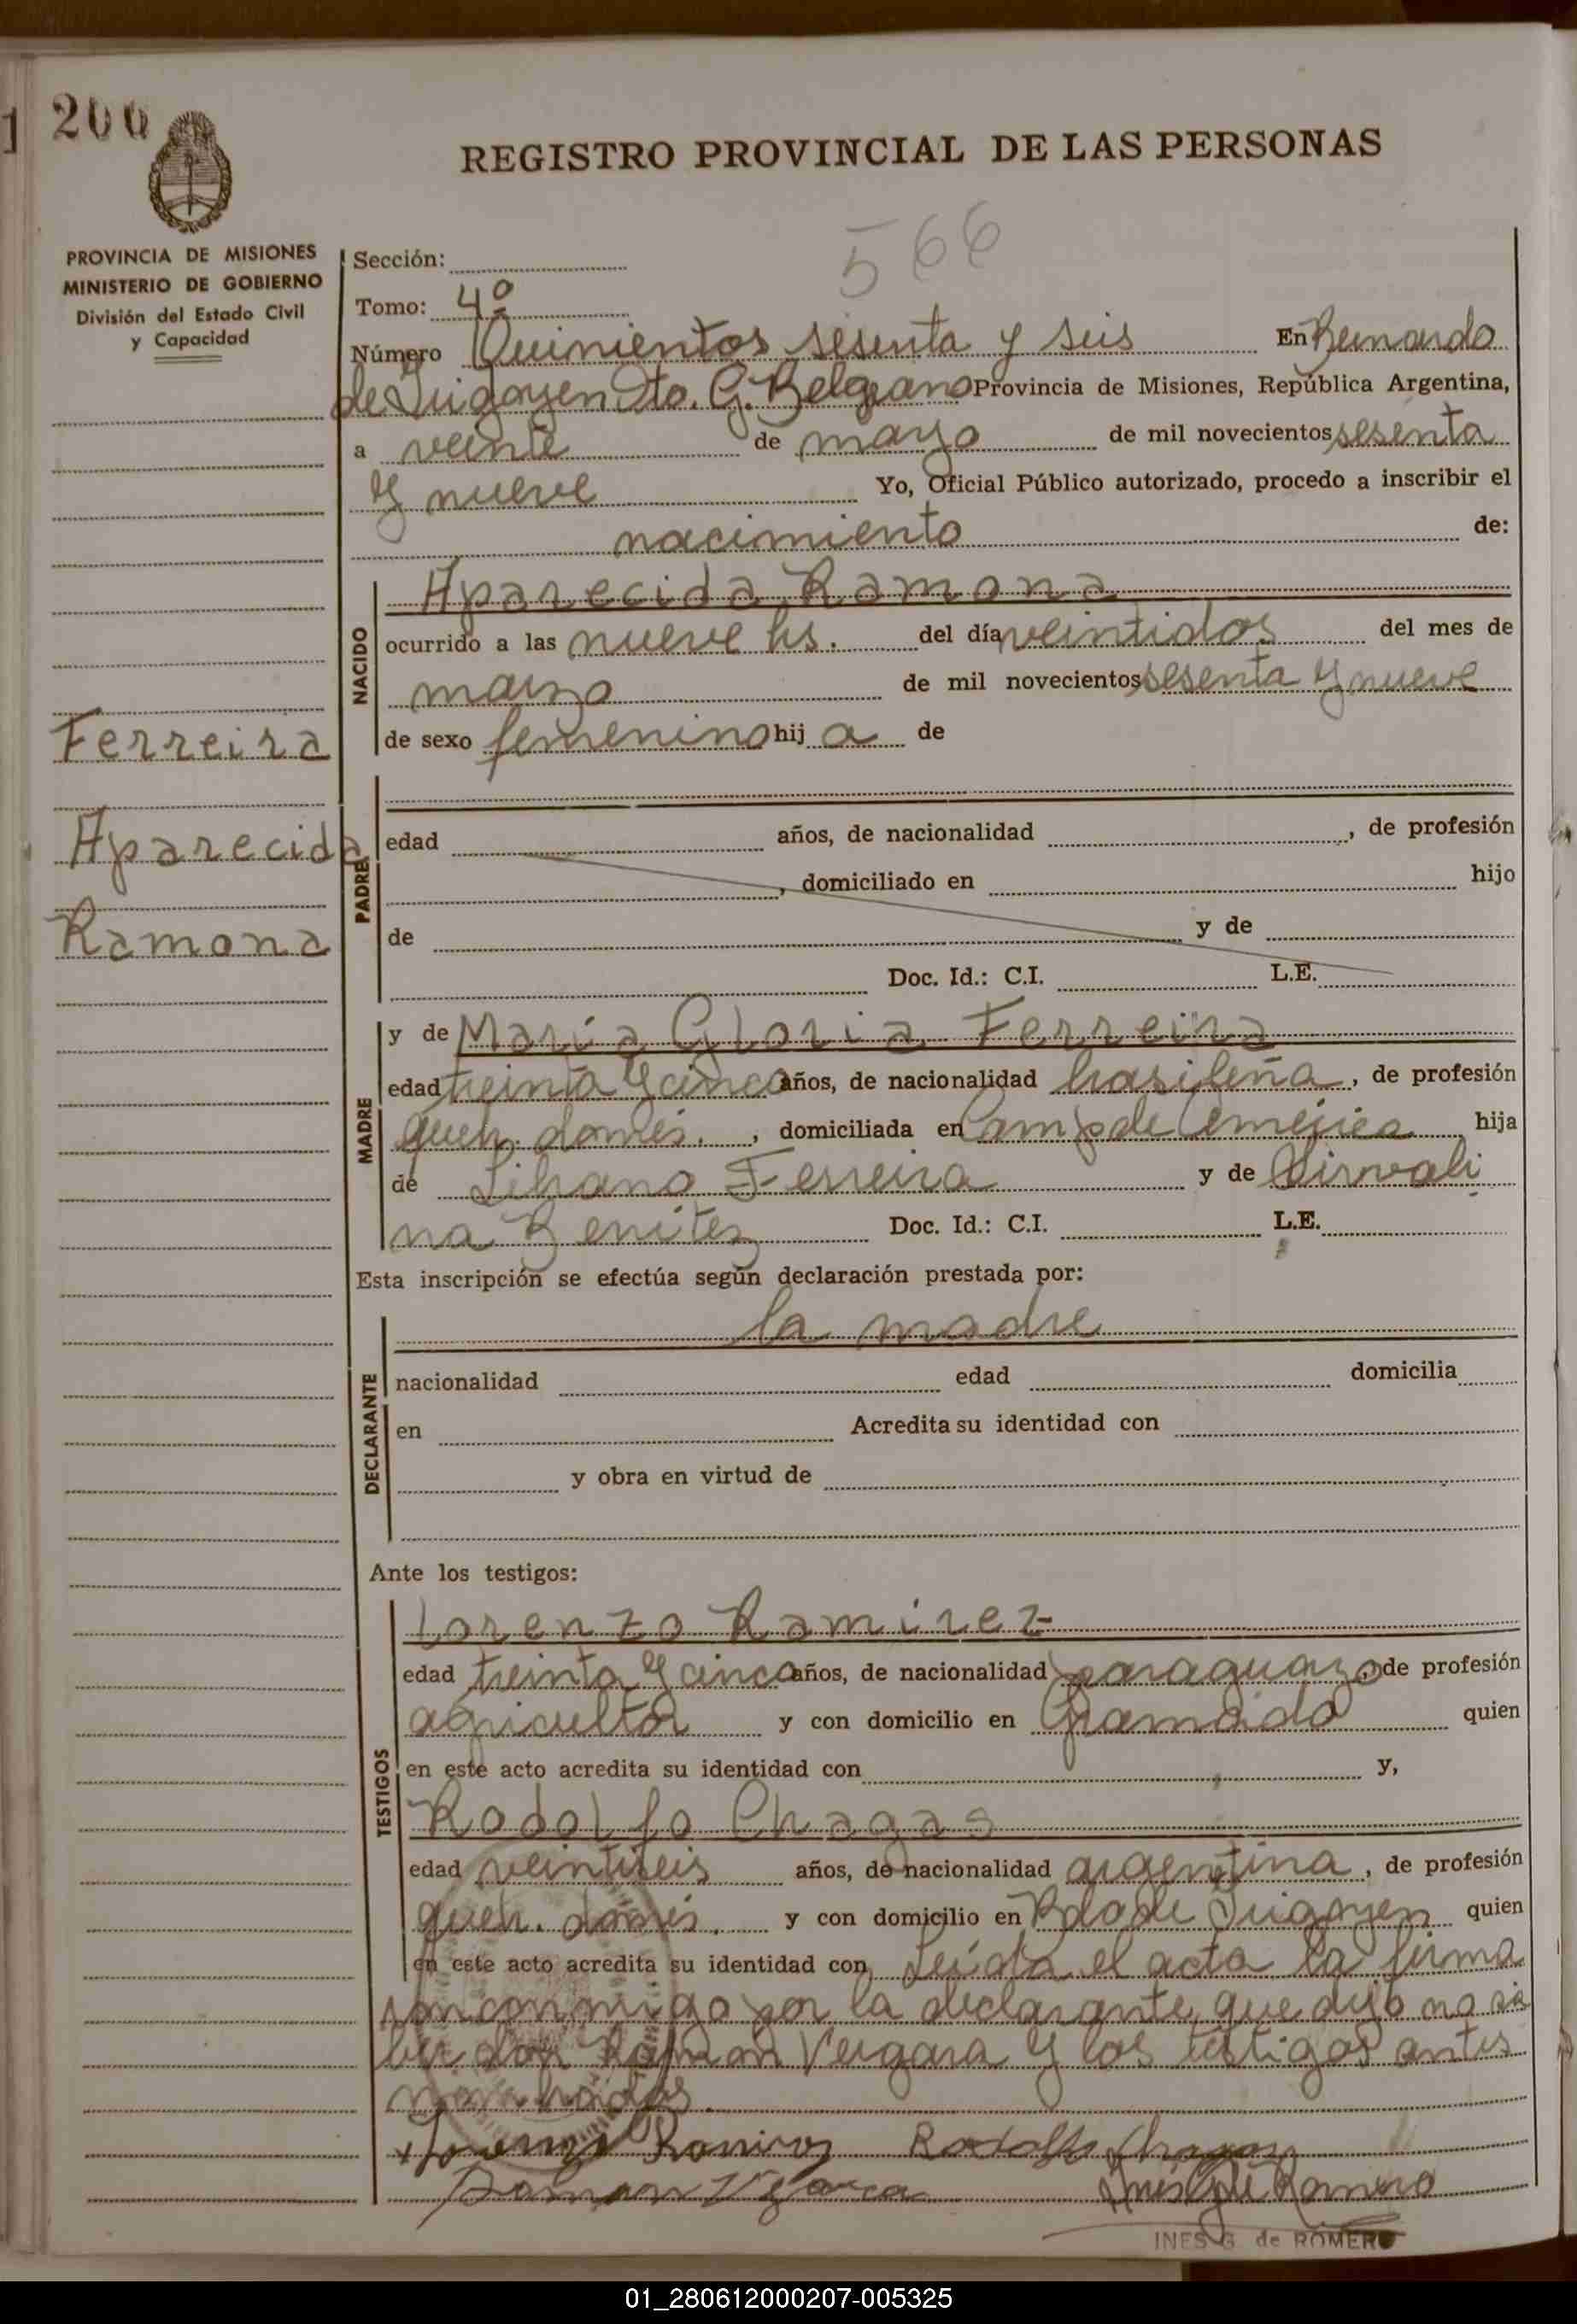 200
REGISTRO PROVINCIAL DE LAS PERSONAS
PROVINCIA DE MISIONES
MINISTERIO DE GOBIERNO
División del Estado Civil
y Capacidad
566
Sección:
Tomo: 4º
Número Quinientos sesenta y seis En Bernardo
de Irigoyen Dto. G. Belgrano Provincia de Misiones, República Argentina,
a veinte de mayo de mil novecientos sesenta
y nueve Yo, Oficial Público autorizado, procedo a inscribir el
nacimiento de:
NACIDO
Aparecida Ramona
ocurrido a las nueve hs. del día veintidos del mes de
marzo de mil novecientos sesenta y nueve
de sexo femenino hij a de
Ferreira
Aparecida
Ramona
PADRE
edad años, de nacionalidad , de profesión
, domiciliado en hijo
de y de
Doc. Id.: C.I. L.E.
MADRE
y de María Gloria Ferreira
edad treinta y cinco años, de nacionalidad brasileña, de profesión
queh. domés. , domiciliada en hija
de Libano Ferreira y de
na Benitez Doc. Id.: C.I. L.E.
Esta inscripción se efectúa según declaración prestada por:
la madre
DECLARANTE
nacionalidad edad domicilia
en Acredita su identidad con
y obra en virtud de
Ante los testigos:
TESTIGOS
Lorenzo Ramirez
edad treinta y cinco años, de nacionalidad paraguayo, de profesión
agricultor y con domicilio en Gramado quien
en este acto acredita su identidad con y,
Rodolfo Chagas
edad veintiseis años, de nacionalidad argentina, de profesión
queh. domés. y con domicilio en Bdo de Irigoyen quien
en este acto acredita su identidad con Leída el acta la firma
son conmigo por la declarante que dijo no sa
ber don Ramon Vergara y los testigos antes
Lorenzo Ramirez Rodolfo Chagas
Ramon Vergara Inés G de Romero
INES G. de ROMERO
01_280612000207-005325